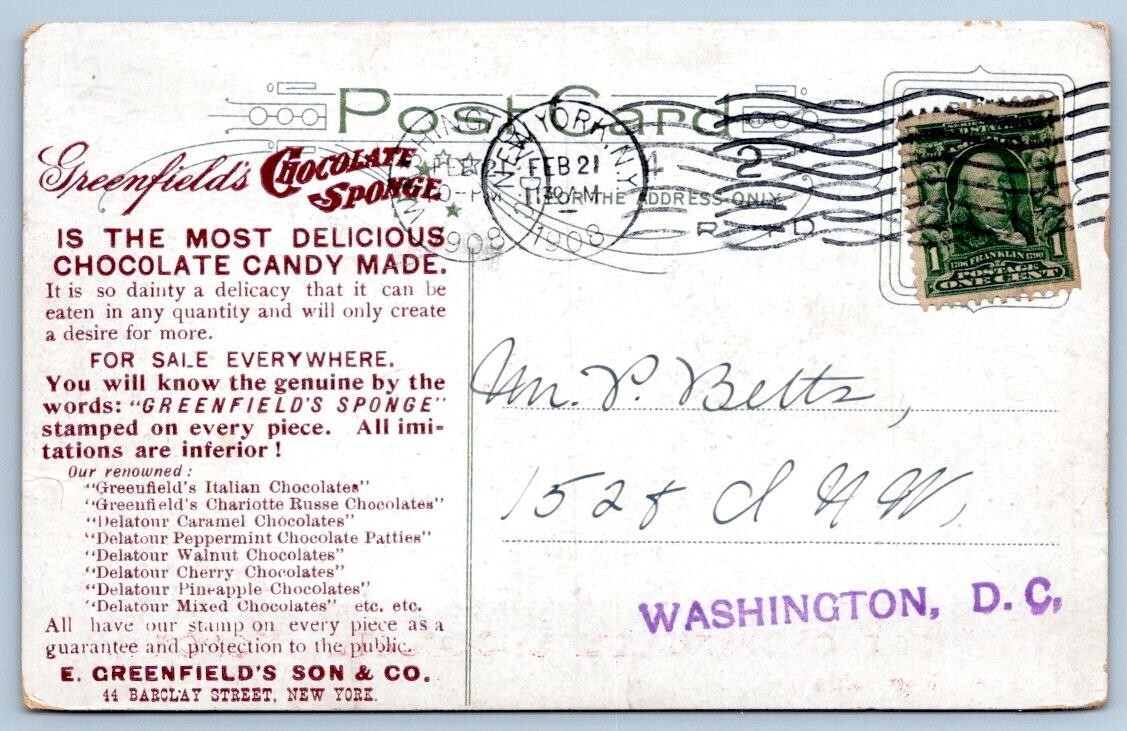 Post Card
FOR THE ADDRESS ONLY
NEW YORK, N.Y.
FEB 21
1908
FEB 21
1908
2
1
1
1706 FRANKLIN 1790
POSTAGE
ONE CENT
Greenfield's CHOCOLATE
SPONGE
IS THE MOST DELICIOUS
CHOCOLATE CANDY MADE.
It is so dainty a delicacy that it can be
eaten in any quantity and will only create
a desire for more.
FOR SALE EVERYWHERE.
You will know the genuine by the
words: "GREENFIELD'S SPONGE"
stamped on every piece. All imi-
tations are inferior!
Our renowned:
"Greenfield's Italian Chocolates"
"Greenfield's Charlotte Russe Chocolates"
"Delatour Caramel Chocolates"
"Delatour Peppermint Chocolate Patties"
"Delatour Walnut Chocolates"
"Delatour Cherry Chocolates"
"Delatour Pineapple Chocolates"
"Delatour Mixed Chocolates" etc. etc.
All have our stamp on every piece as a
guarantee and protection to the public.
E. GREENFIELD'S SON & CO.
44 BARCLAY STREET, NEW YORK.
Mr. P. Betts,
1528 I N W,
WASHINGTON, D.C,